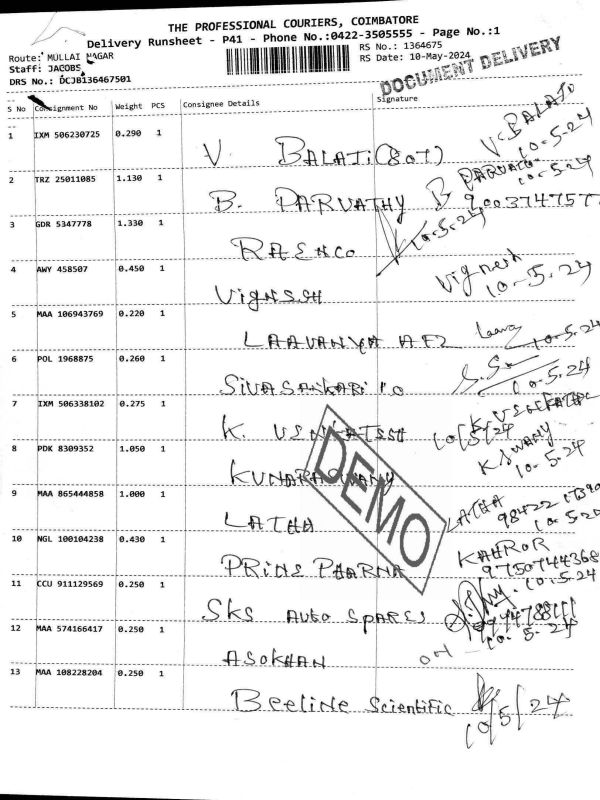 THE PROFESSIONAL COURIERS, COIMBATORE
Delivery Runsheet - P41 - Phone No.:0422-3505555 - Page No.:1
Route: MULLAI NAGAR
RS No.: 1364675
Staff: JACOBS
RS Date: 10-May-2024
DRS No.: DCJB136467501
DOCUMENT DELIVERY
S No Consignment No Weight PCS Consignee Details Signature
1 IXM 506230725 0.290 1 V. BALAJI (801) V. BALAJI 10.5.24
2 TRZ 25011085 1.130 1 B. PARVATHY B PARVATHY 10.5.24 9003747577
3 GDR 5347778 1.330 1 RAENCO 10.5.24
4 AWY 458507 0.450 1 VIGNESH Vignesh 10-5.24
5 MAA 106943769 0.220 1 LAAVANYA 10.5.24
6 POL 1968875 0.260 1 SIVASANKARI 10.5.24
7 IXM 506338102 0.275 1 K. VENKATESH 10/5/24
8 PDK 8309352 1.050 1 KUMARASWAMY K SWAMY 10.5.24
9 MAA 865444858 1.000 1 LATHA LATHA 98422
10 NGL 100104238 0.430 1 PRIME PHARMA 9750744368
11 CCU 911129569 0.250 1 SKS AUTO SPARES 10.5.24
12 MAA 574166417 0.250 1 ASOKHAN 10.5.24
13 MAA 108228204 0.250 1 Beeline Scientific 10/5/24
DEMO